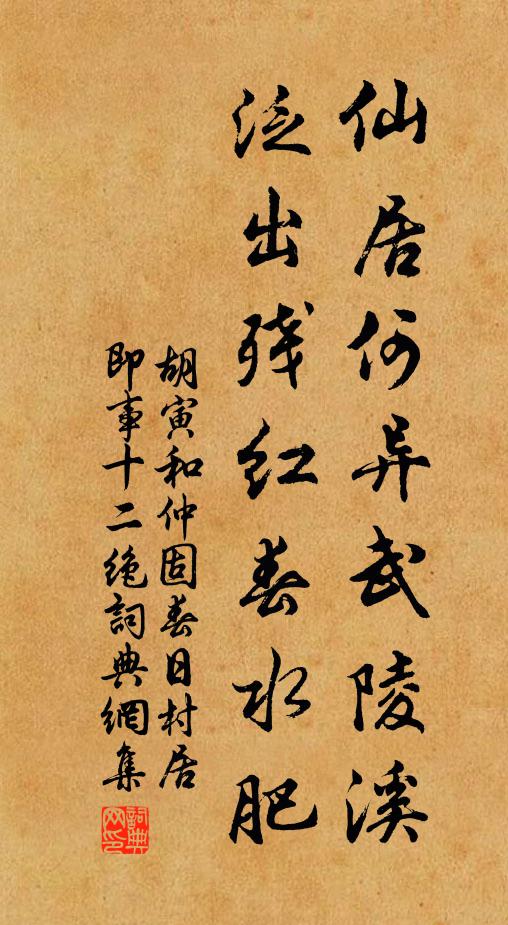 仙居何异武陵溪
泛出残红春水肥
胡寅和仲固春日村居
即事十二绝詞典網集
詞典
网印